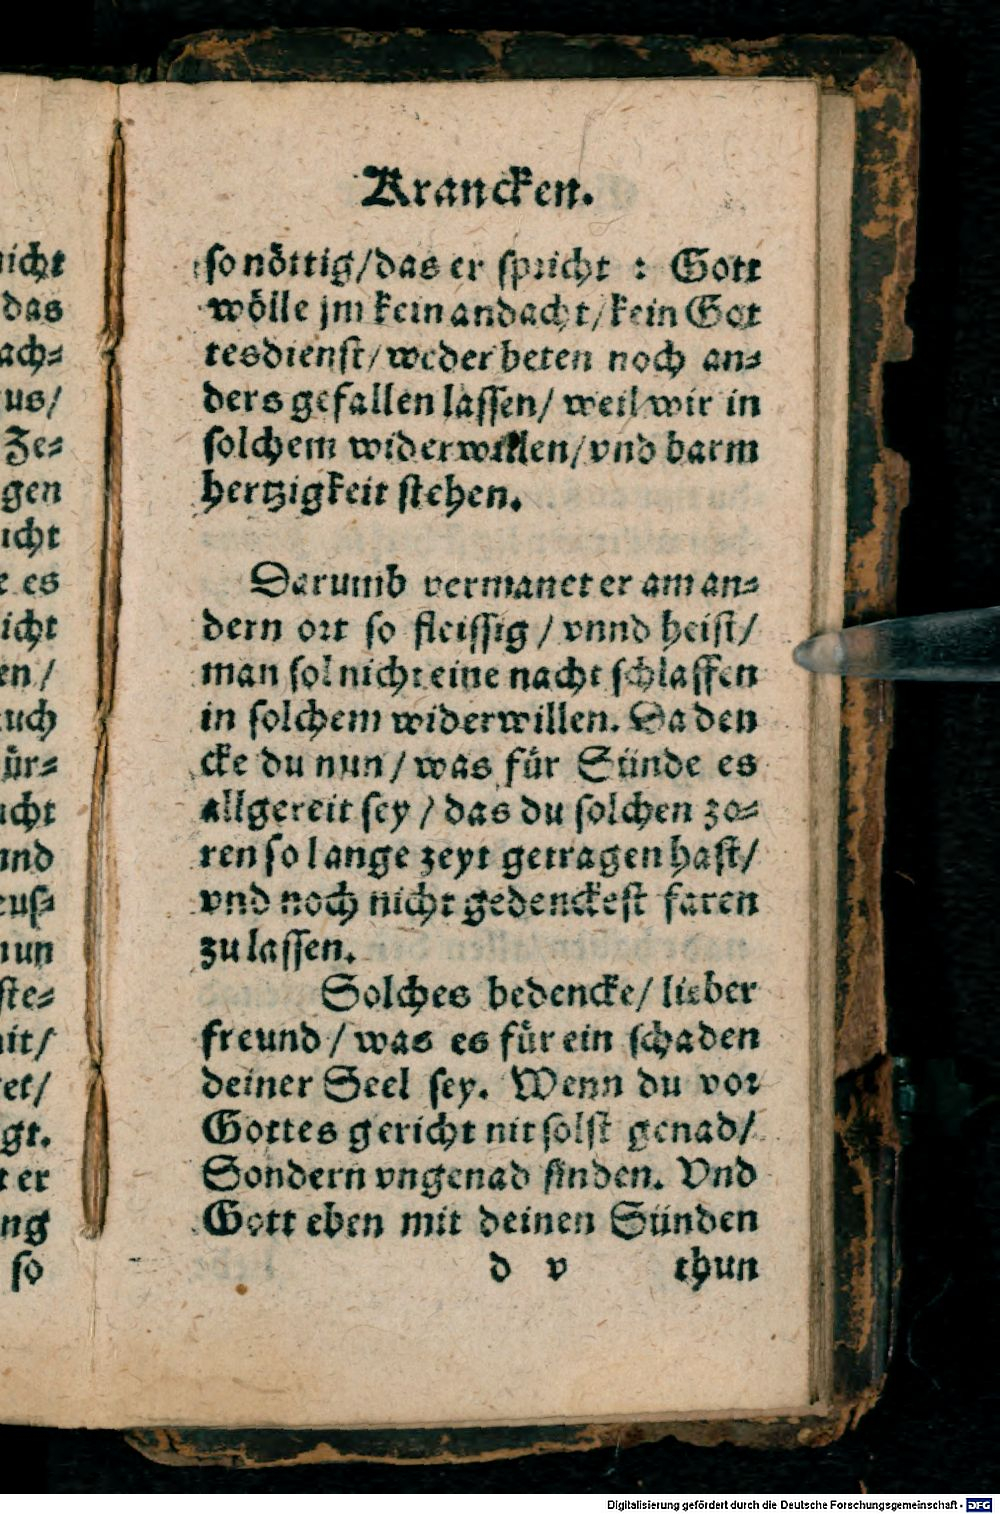 Krancken.
so nöttig/das er spricht : Gott
wölle jm kein andacht/kein Got
tesdienst/weder beten noch an⸗
ders gefallen lassen/ weil wir in
solchem widerwillen/vnd barm
hertzigkeit stehen.
Darumb vermanet er am an⸗
dern ort so fleissig / vnnd heist/
man sol nicht eine nacht schlaffen
in solchem widerwillen. Da den
cke du nun / was für Sünde es
allgereit sey / das du solchen zo⸗
ren so lange zeyt getragen hast/
vnd noch nicht gedenckest faren
zu lassen.
Solches bedencke/ lieber
freund / was es für ein schaden
deiner Seel sey. Wenn du vor
Gottes gericht nit solst genad/
Sondern vngenad finden. Vnd
Gott eben mit deinen Sünden
d v thun
icht
das
ach⸗
us/
Ze⸗
gen
icht
e es
icht
en /
uch
ür⸗
icht
nnd
eus⸗
nun
ste⸗
it/
et/
gt.
t er
ng
so
Digitalisierung gefördert durch die Deutsche Forschungsgemeinschaft - DFG